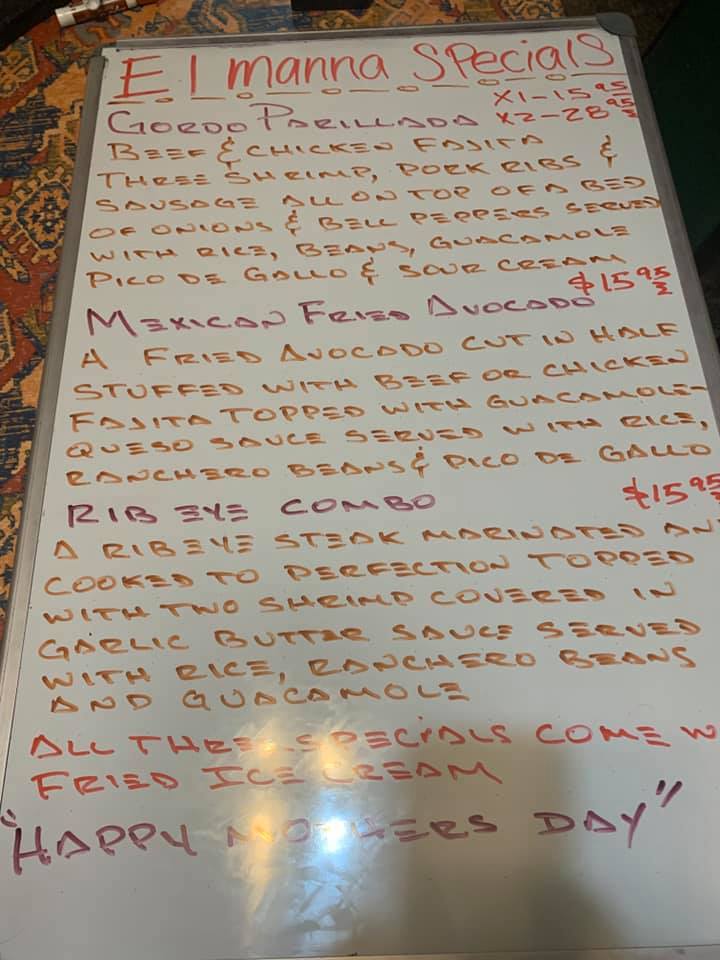 El manna Specials
Gordo Parillada x1-15.95
x2-28.95
Beef & chicken fajita
three shrimp, pork ribs &
sausage all on top of a bed
of onions & bell peppers served
with rice, beans, guacamole
pico de gallo & sour cream
Mexican Fried Avocado $15.95
A fried avocado cut in half
stuffed with beef or chicken
fajita topped with guacamole-
queso sauce served with rice,
ranchero beans & pico de gallo
Rib eye combo $15.95
A ribeye steak marinated an
cooked to perfection topped
with two shrimp covered in
garlic butter sauce served
with rice, ranchero beans
and guacamole
All three specials come w
fried ice cream
"Happy Mothers Day"